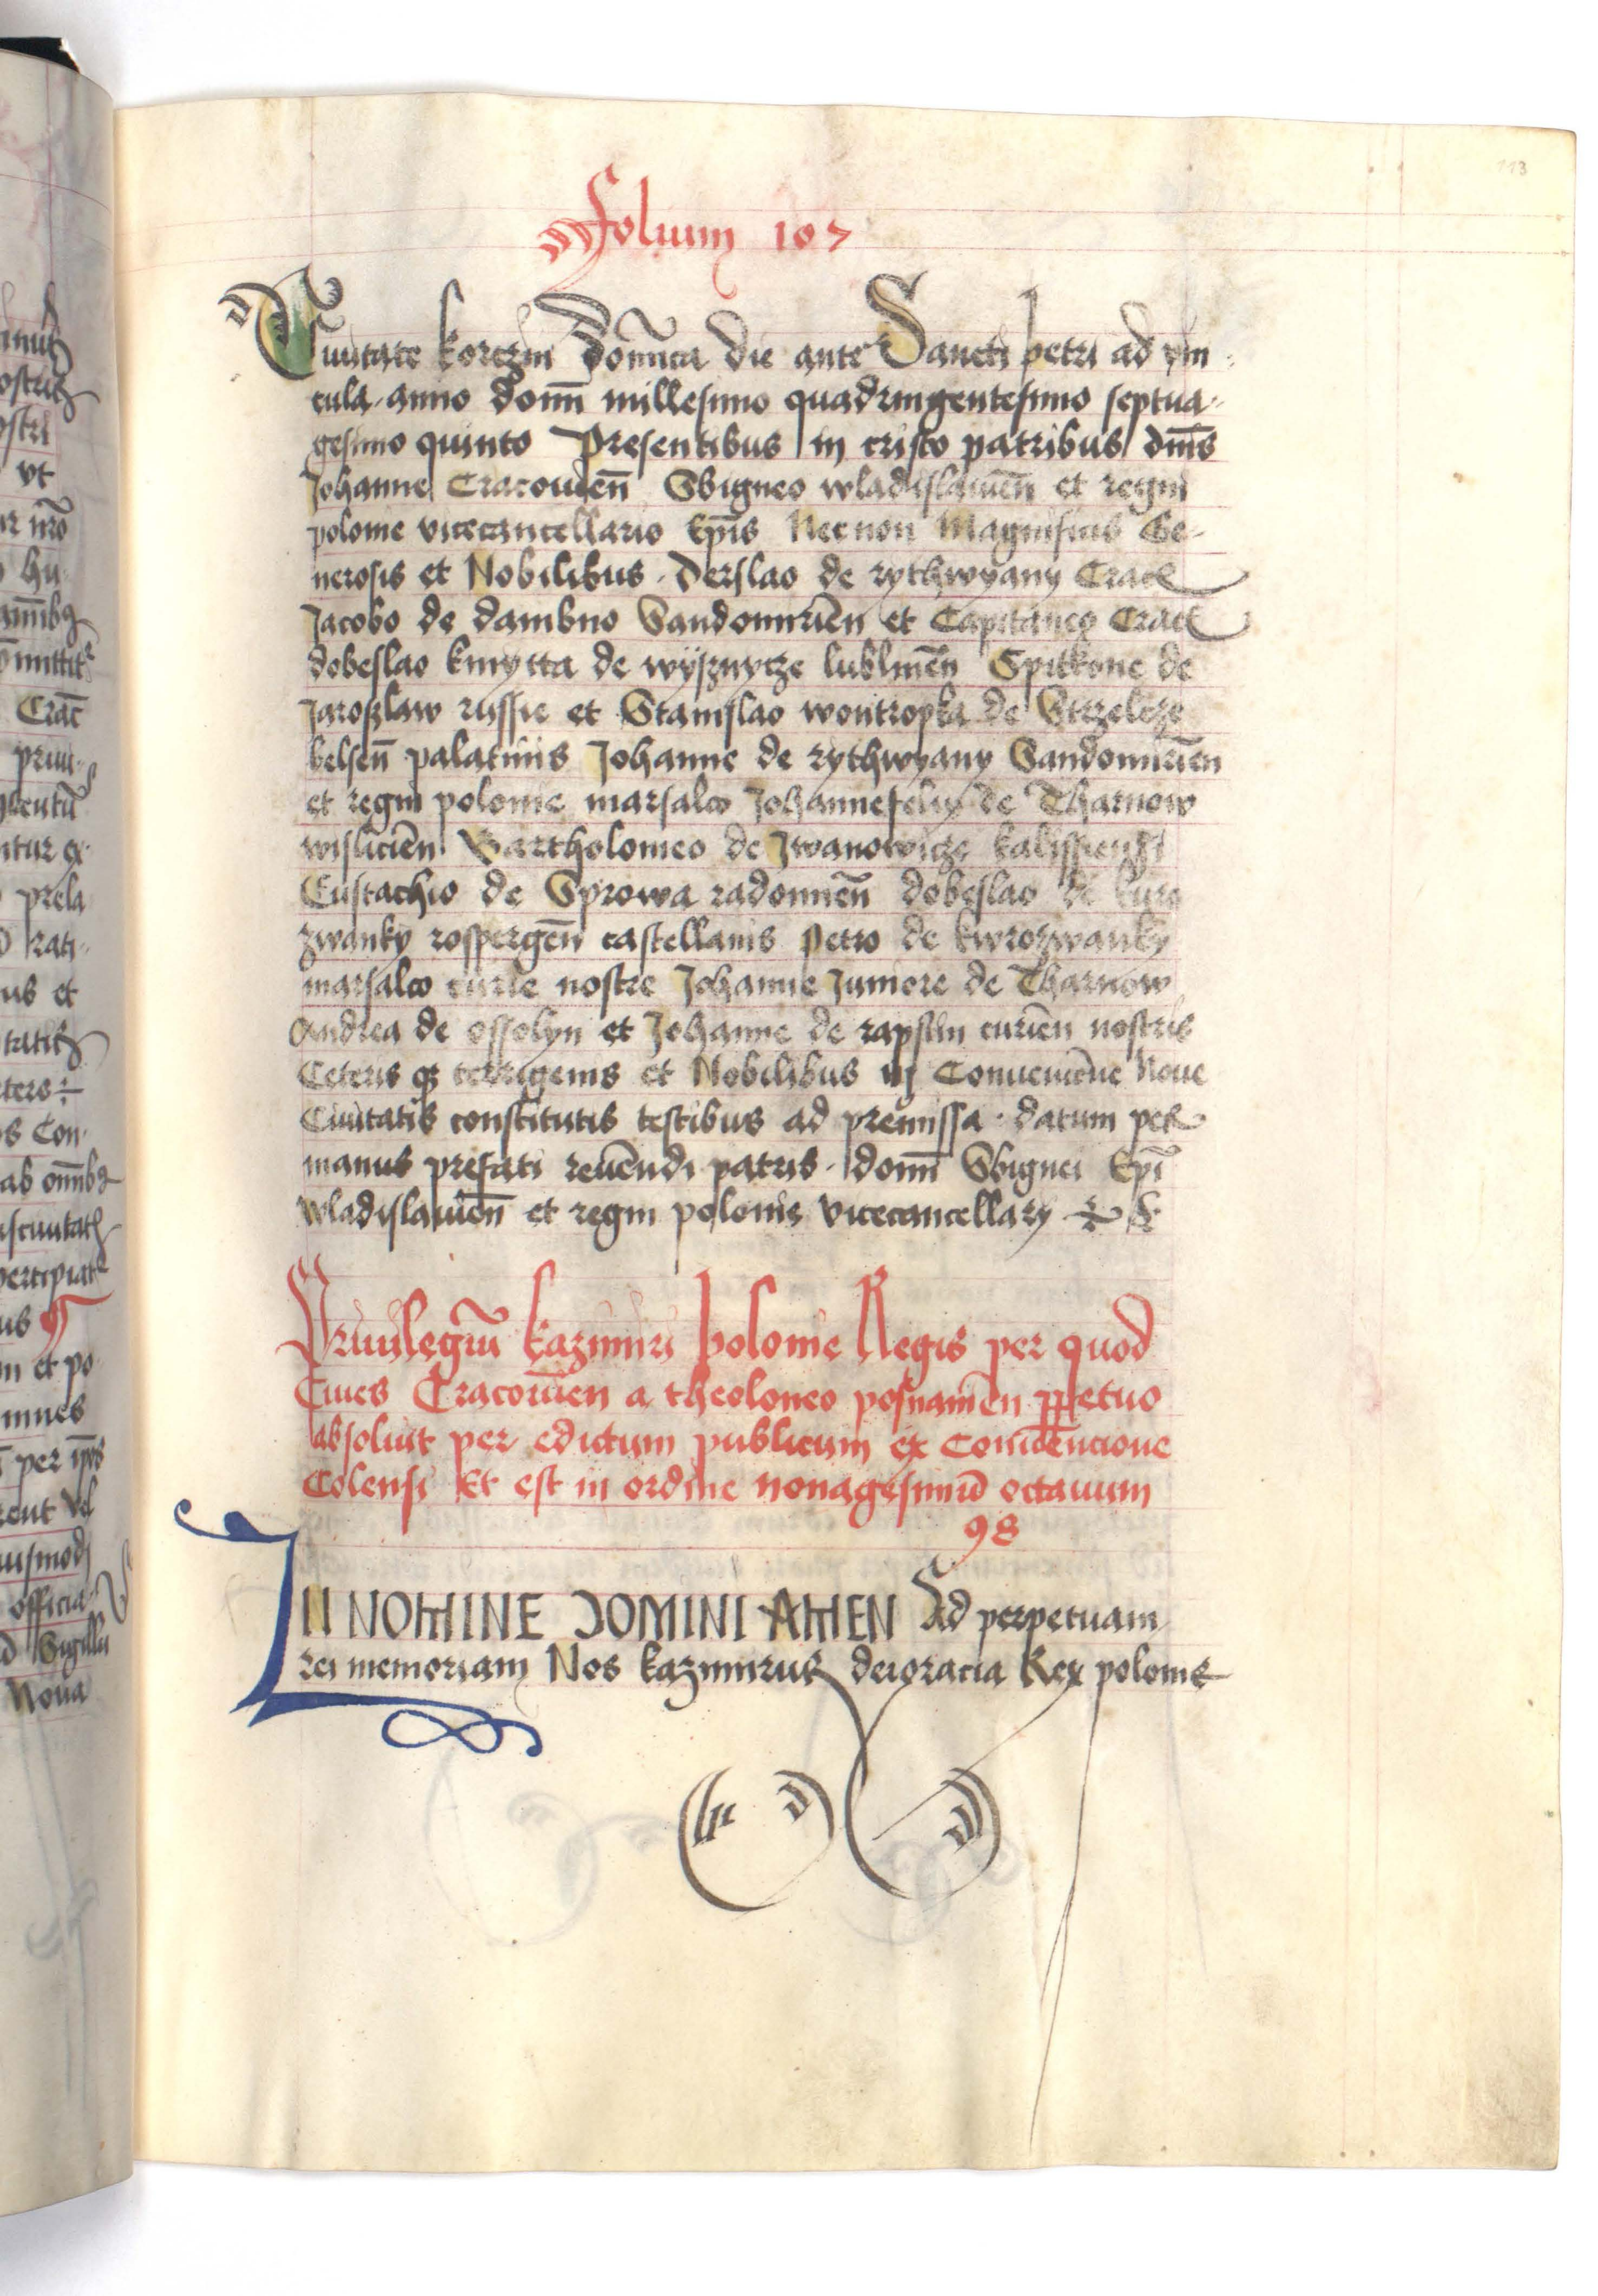 113
Folium 107
Ciuitate korczin Do͞mica Die ante Sancti petri ad vin-
cula anno dom͞i millesimo quadringentesimo septua-
gesimo quinto Presentibus in cristo patribus dn͞is
Johanne Cracouien͞ Sbigneo wladislauien͞ et regni
polonie vicecancellario Ep͞is Necnon Magnificis Ge-
nerosis et Nobilibus Derslao de rythwyany Crac
Jacobo de dambno Sandomirien͞ et Capitaneo Crac
dobeslao kmytta de wÿsznycze lublinen͞ Spitkone de
Jaroslaw russie et Stanislao wontropka de Strzelcze
belsen͞ palatinis Johanne de rythwyany Sandomirien͞
et regni polonie marsalco Johannefelix de Tharnow
wislicien͞ Bartholomeo de Jwanowicze kalissiensi
Eustachio de Sprowa radomien͞ dobeslao de kuro
zwanky rospergen͞ castellanis Petro de kwrozwanky
marsalco curie nostre Johanne Juniore de Tharnow
Andrea de ossolyn et Johanne de rapstin curien͞ nostris
Ceteris qȝ terrigenis et Nobilibus in Conuencione Noue
Ciuitatis constitutis testibus ad premissa · datum per
manus prefati reue͞ndi patris · dom͞i Sbignei Ep͞i
wladislauien͞ et regni polonie vicecancellary
Priuilegiu͞ kazimiri polonie Regis per quod
Ciues Cracouien͞ a theoloneo posnanien͞ ꝑpetuo
absoluit per edictum publicum ex Conue͞ncione
Colensi Et est in ordine nonagesimu͞ octauum
98
IN NOMINE DOMINI AMEN Ad perpetuam
rei memoriam Nos kazimirus dei gracia Rex polonie